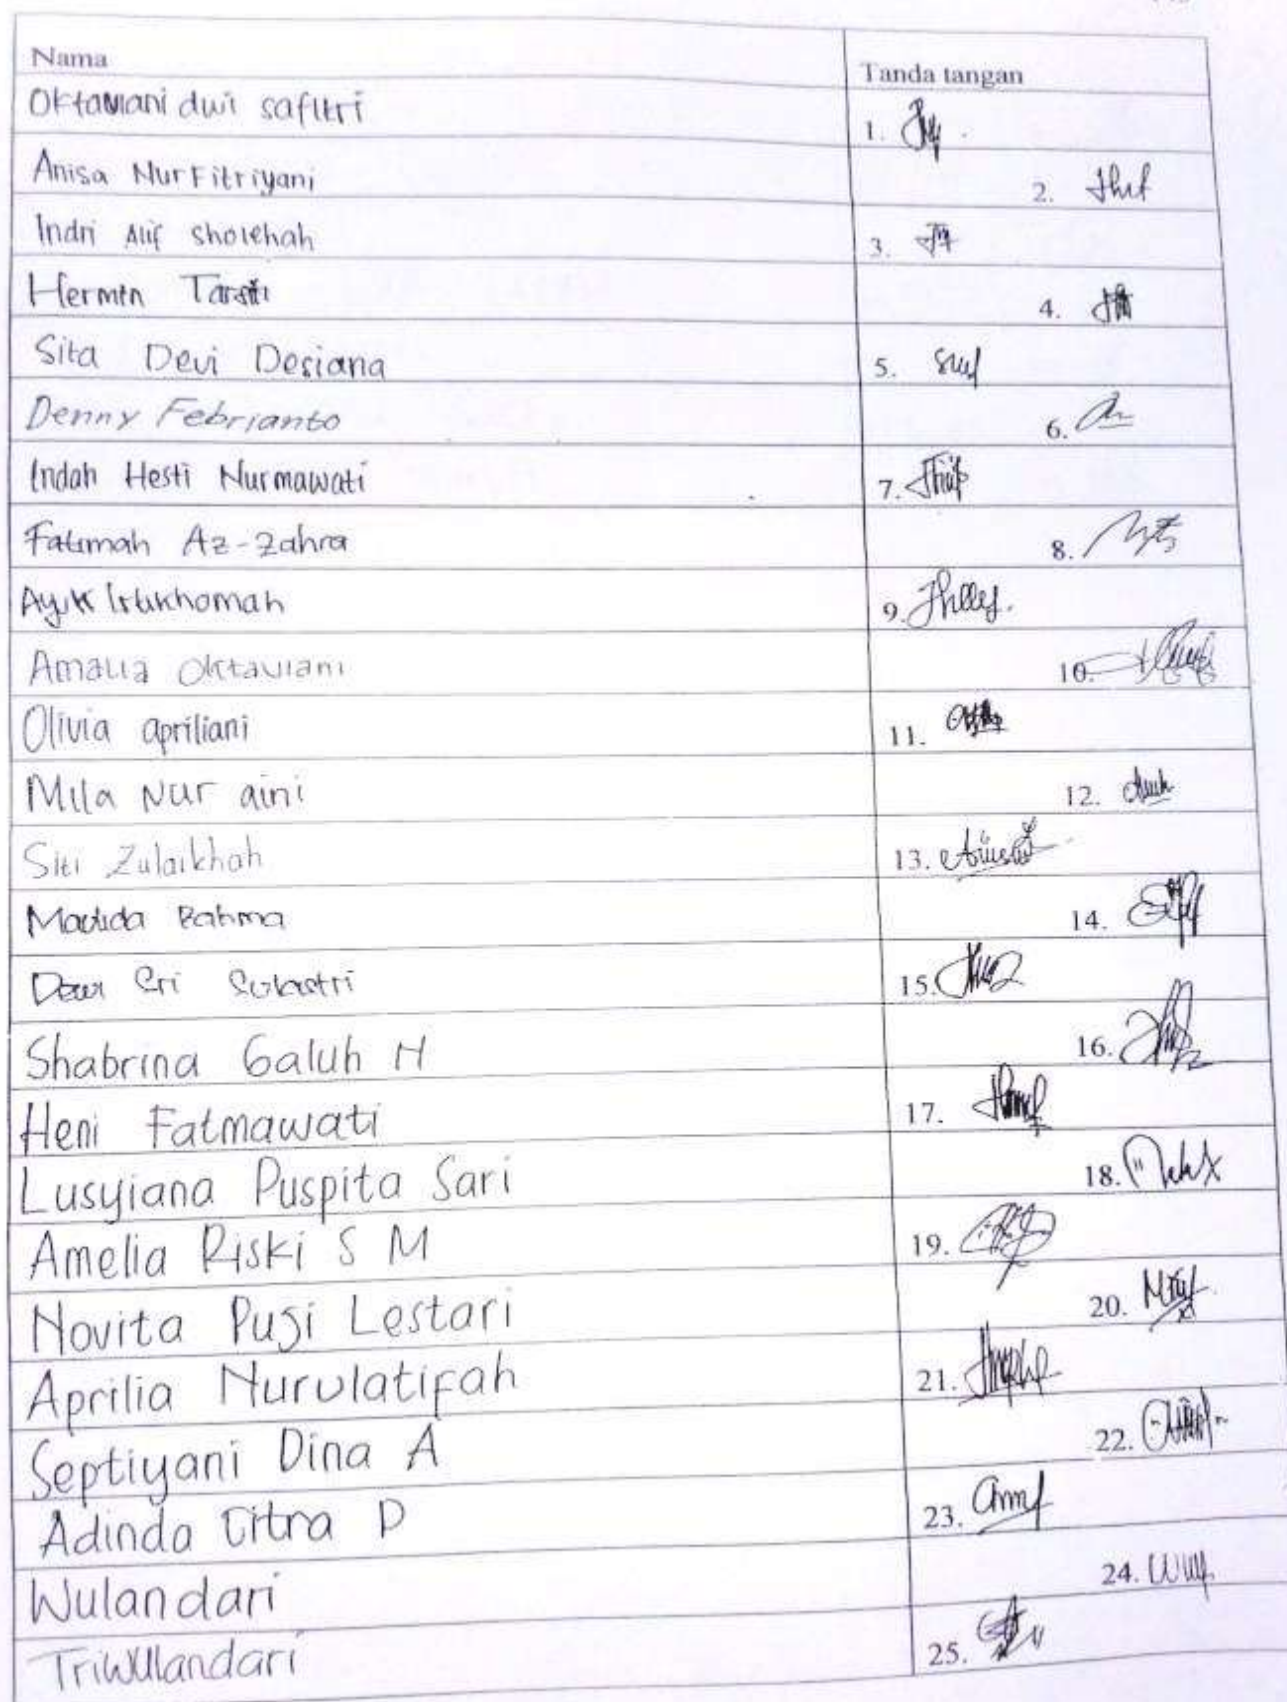 Nama
Tanda tangan
Oktaviani dwi safitri
1.
Anisa Nur Fitriyani
2.
Indri Alif sholehah
3.
Hermin Tarsiti
4.
Sita Devi Desiana
5.
Denny Febrianto
6.
Indah Hesti Nurmawati
7.
Fatimah Az-Zahra
8.
Ayik Istikhomah
9.
Amalia Oktaviani
10.
Olivia apriliani
11.
Mila Nur aini
12.
Siti Zulaikhah
13.
Rahma
14.
Dewi Sri Sulastri
15.
Shabrina Galuh H
16.
Heni Fatmawati
17.
Lusyiana Puspita Sari
18.
Amelia Riski S M
19.
Novita Puji Lestari
20.
Aprilia Nurulatifah
21.
Septiyani Dina A
22.
Adinda Citra D
23.
Wulandari
24.
Triwulandari
25.